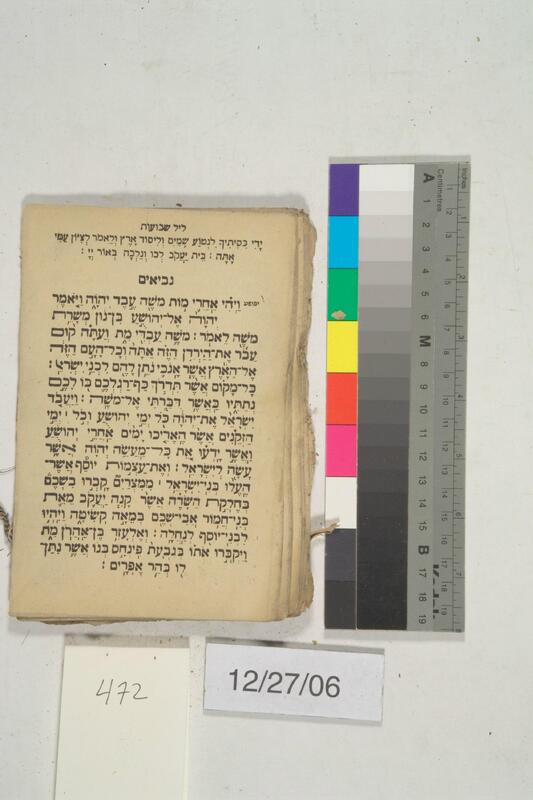 ליל שבועות
יָדִי כִּסִּיתִיךָ לִנְטוֹעַ שָׁמַיִם וְלִיסוֹד אָרֶץ וְלֵאמֹר לְצִיּוֹן עַמִּי
אָתָּה : בֵּית יַעֲקֹב לְכוּ וְנֵלְכָה בְּאוֹר יְיָ :
נביאים
יהושע וַיְהִי אַחֲרֵי מוֹת מֹשֶׁה עֶבֶד יְהוָֹה וַיֹּאמֶר
יְהוָֹה אֶל־יְהוֹשֻׁעַ בִּן־נוּן מְשָׁרֵת
מֹשֶׁה לֵאמֹר : מֹשֶׁה עַבְדִּי מֵת וְעַתָּה קוּם
עֲבֹר אֶת־הַיַּרְדֵּן הַזֶּה אַתָּה וְכָל־הָעָם הַזֶּה
אֶל־הָאָרֶץ אֲשֶׁר אָנֹכִי נֹתֵן לָהֶם לִבְנֵי יִשְׂרָאֵל :
כָּל־מָקוֹם אֲשֶׁר תִּדְרֹךְ כַּף־רַגְלְכֶם בּוֹ לָכֶם
נְתַתִּיו כַּאֲשֶׁר דִּבַּרְתִּי אֶל־מֹשֶׁה : וַיַּעֲבֹד
יִשְׂרָאֵל אֶת־יְהוָֹה כֹּל יְמֵי יְהוֹשֻׁעַ וְכֹל יְמֵי
הַזְּקֵנִים אֲשֶׁר הֶאֱרִיכוּ יָמִים אַחֲרֵי יְהוֹשֻׁעַ
וַאֲשֶׁר יָדְעוּ אֵת כָּל־מַעֲשֵׂה יְהוָֹה אֲשֶׁר
עָשָׂה לְיִשְׂרָאֵל : וְאֶת־עַצְמוֹת יוֹסֵף אֲשֶׁר־
הֶעֱלוּ בְנֵי־יִשְׂרָאֵל מִמִּצְרַיִם קָבְרוּ בִשְׁכֶם
בְּחֶלְקַת הַשָּׂדֶה אֲשֶׁר קָנָה יַעֲקֹב מֵאֵת
בְּנֵי־חֲמוֹר אֲבִי־שְׁכֶם בְּמֵאָה קְשִׂיטָה וַיִּהְיוּ
לִבְנֵי־יוֹסֵף לְנַחֲלָה : וְאֶלְעָזָר בֶּן־אַהֲרֹן מֵת
וַיִּקְבְּרוּ אֹתוֹ בְּגִבְעַת פִּינְחָס בְּנוֹ אֲשֶׁר נִתַּן
לוֹ בְּהַר אֶפְרָיִם :
472
12/27/06
Centimetres
Inches
A 1 2 3 4 5 M 6 7 8 9 10 11 12 13 14 15 B 16 17 18 19
1 2 3 4 5 6 7